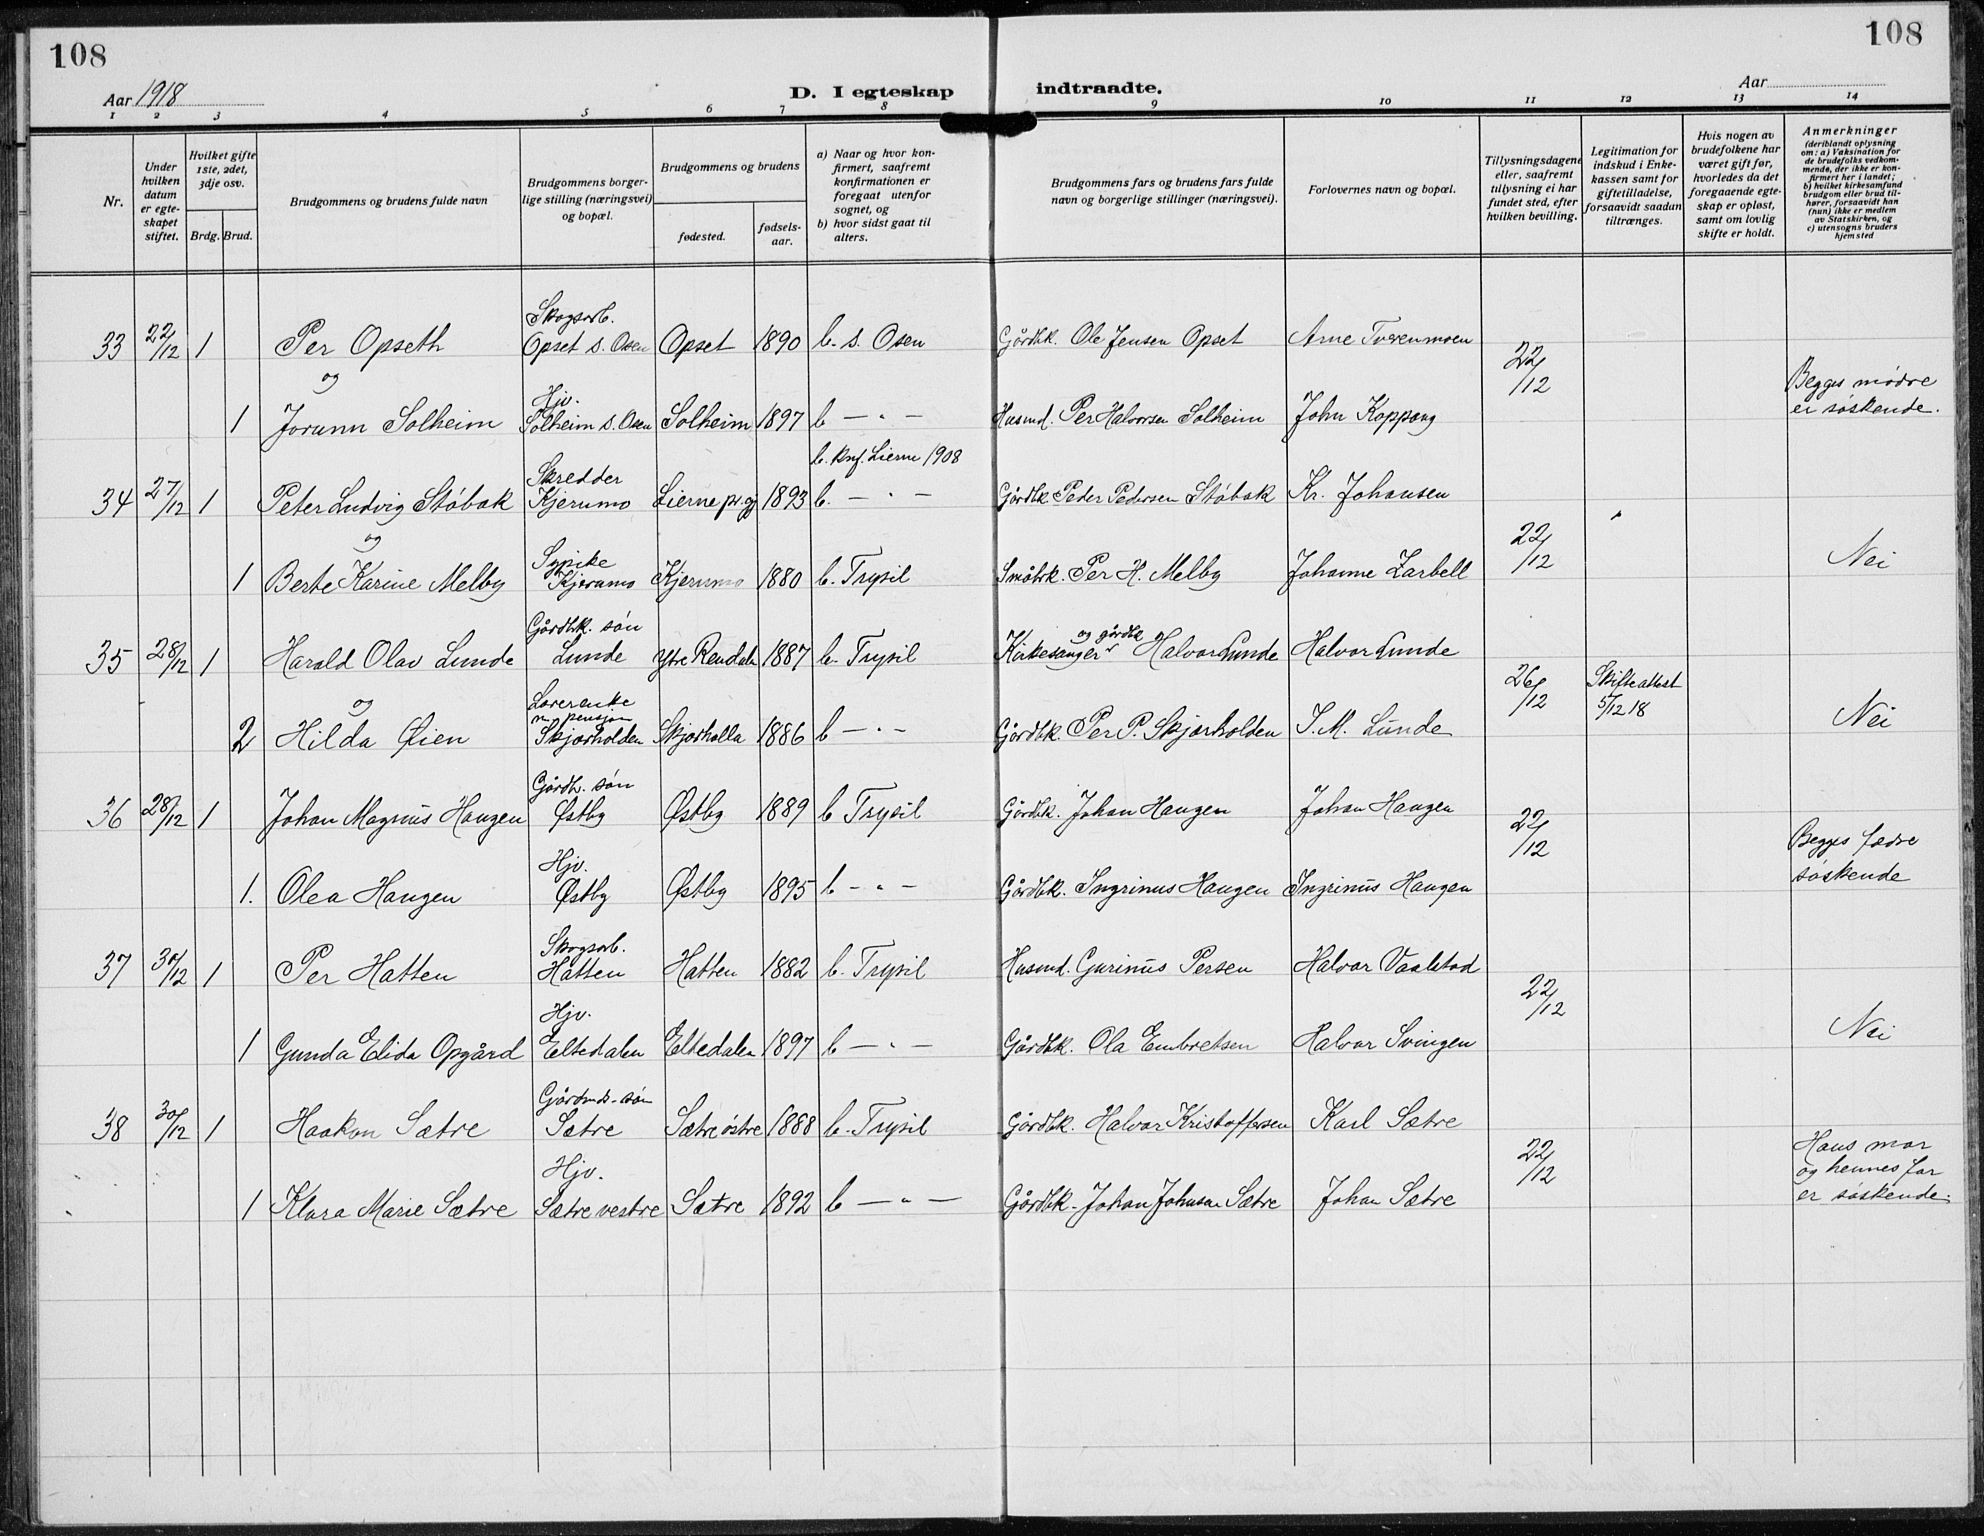 108
108
Aar 1918
D. I egteskap indtraadte.
Aar
1 2 3 4 5 6 7 8 9 10 11 12 13 14
Nr.
Under hvilken datum er egteskapet stiftet.
Hvilket gifte 1ste, 2det, 3dje osv.
Brdg. Brud.
Brudgommens og brudens fulde navn
Brudgommens borgerlige stilling (næringsvei) og bopæl.
Brudgommens og brudens
fødested.
fødselsaar.
a) Naar og hvor konfirmert, saafremt konfirmationen er foregaat utenfor sognet, og
b) hvor sidst gaat til alters.
Brudgommens fars og brudens fars fulde navn og borgerlige stillinger (næringsvei).
Forlovernes navn og bopæl.
Tillysningsdagene eller, saafremt tillysning ei har fundet sted, efter hvilken bevilling.
Legitimation for indskud i Enkekassen samt for giftetilladelse, forsaavidt saadan tiltrænges.
Hvis nogen av brudefolkene har været gift før, hvorledes da det foregaaende egteskap er opløst, samt om lovlig skifte er holdt.
Anmerkninger (deriblandt oplysning om: a) Vaksination for de brudefolks vedkommende, der ikke er konfirmert her i landet; b) hvilket kirkesamfund brudgom eller brud tilhører, forsaavidt han (hun) ikke er medlem av Statskirken, og c) utensogns bruders hjemsted
33 22/12 1 Per Opseth Skogsarb. Opset s. Osen Opset 1890 b. s. Osen Gårdbk. Ole Jensen Opset Arne Tverenmoen
og 22/12
1 Jorunn Solheim Hjv. Solheim s. Osen Solheim 1897 b — " — Husmd. Per Halvorsen Solheim John Koppang Begges mødre er søskende.
b. Knf. Lierne 1908
34 27/12 1 Peter Ludvig Støbak Skredder Kjerumo Lierne pr.gj 1893 b. — " — Gårdbk Peder Pedersen Støbak Kr. Johansen
og 22/12
1 Berte Karine Melby Sypike Kjerumo Kjerumo 1880 b. Trysil Småbk. Per H. Melby Johanne Zarbell Nei
35 28/12 1 Harald Olav Lunde Gårdbk. søn Lunde Ytre Rendalen 1887 b. Trysil Kirkesanger og gårdbk Halvor Lunde Halvor Lunde
og 26/12 Skifteattest 5/12 18
2 Hilda Øien Lærerenke m. pensjon Skjærholden Skjærholla 1886 b — " — Gårdbk. Per P. Skjærholden T. M. Lunde Nei
36 28/12 1 Johan Magnus Haugen Gårdb. søn Østby Østby 1889 b Trysil Gårdbk. Johan Haugen Johan Haugen
22/12
1. Olea Haugen Hjv. Østby Østby 1895 b — " — Gårdbk. Ingrinus Haugen Ingrinus Haugen Begges fædre søskende
37 30/12 1 Per Hatten Skogsarb. Hatten Hatten 1882 b. Trysil Husmd. Gurinus Persen Halvor Vaalstad
22/12
1 Gunda Elida Opgård Hjv. Eltedalen Eltedalen 1897 b — " — Gårdbk. Ola Embretsen Halvor Svingen Nei
38 30/12 1 Haakon Sætre Gårdmds-søn Sætre Sætre østre 1888 b. Trysil Gårdbk. Halvor Kristoffersen Karl Sætre
22/12
1 Klara Marie Sætre Hjv. Sætre vestre Sætre 1892 b — " — Gårdbk. Johan Johnsen Sætre Johan Sætre Hans mor og hennes far er søskende.